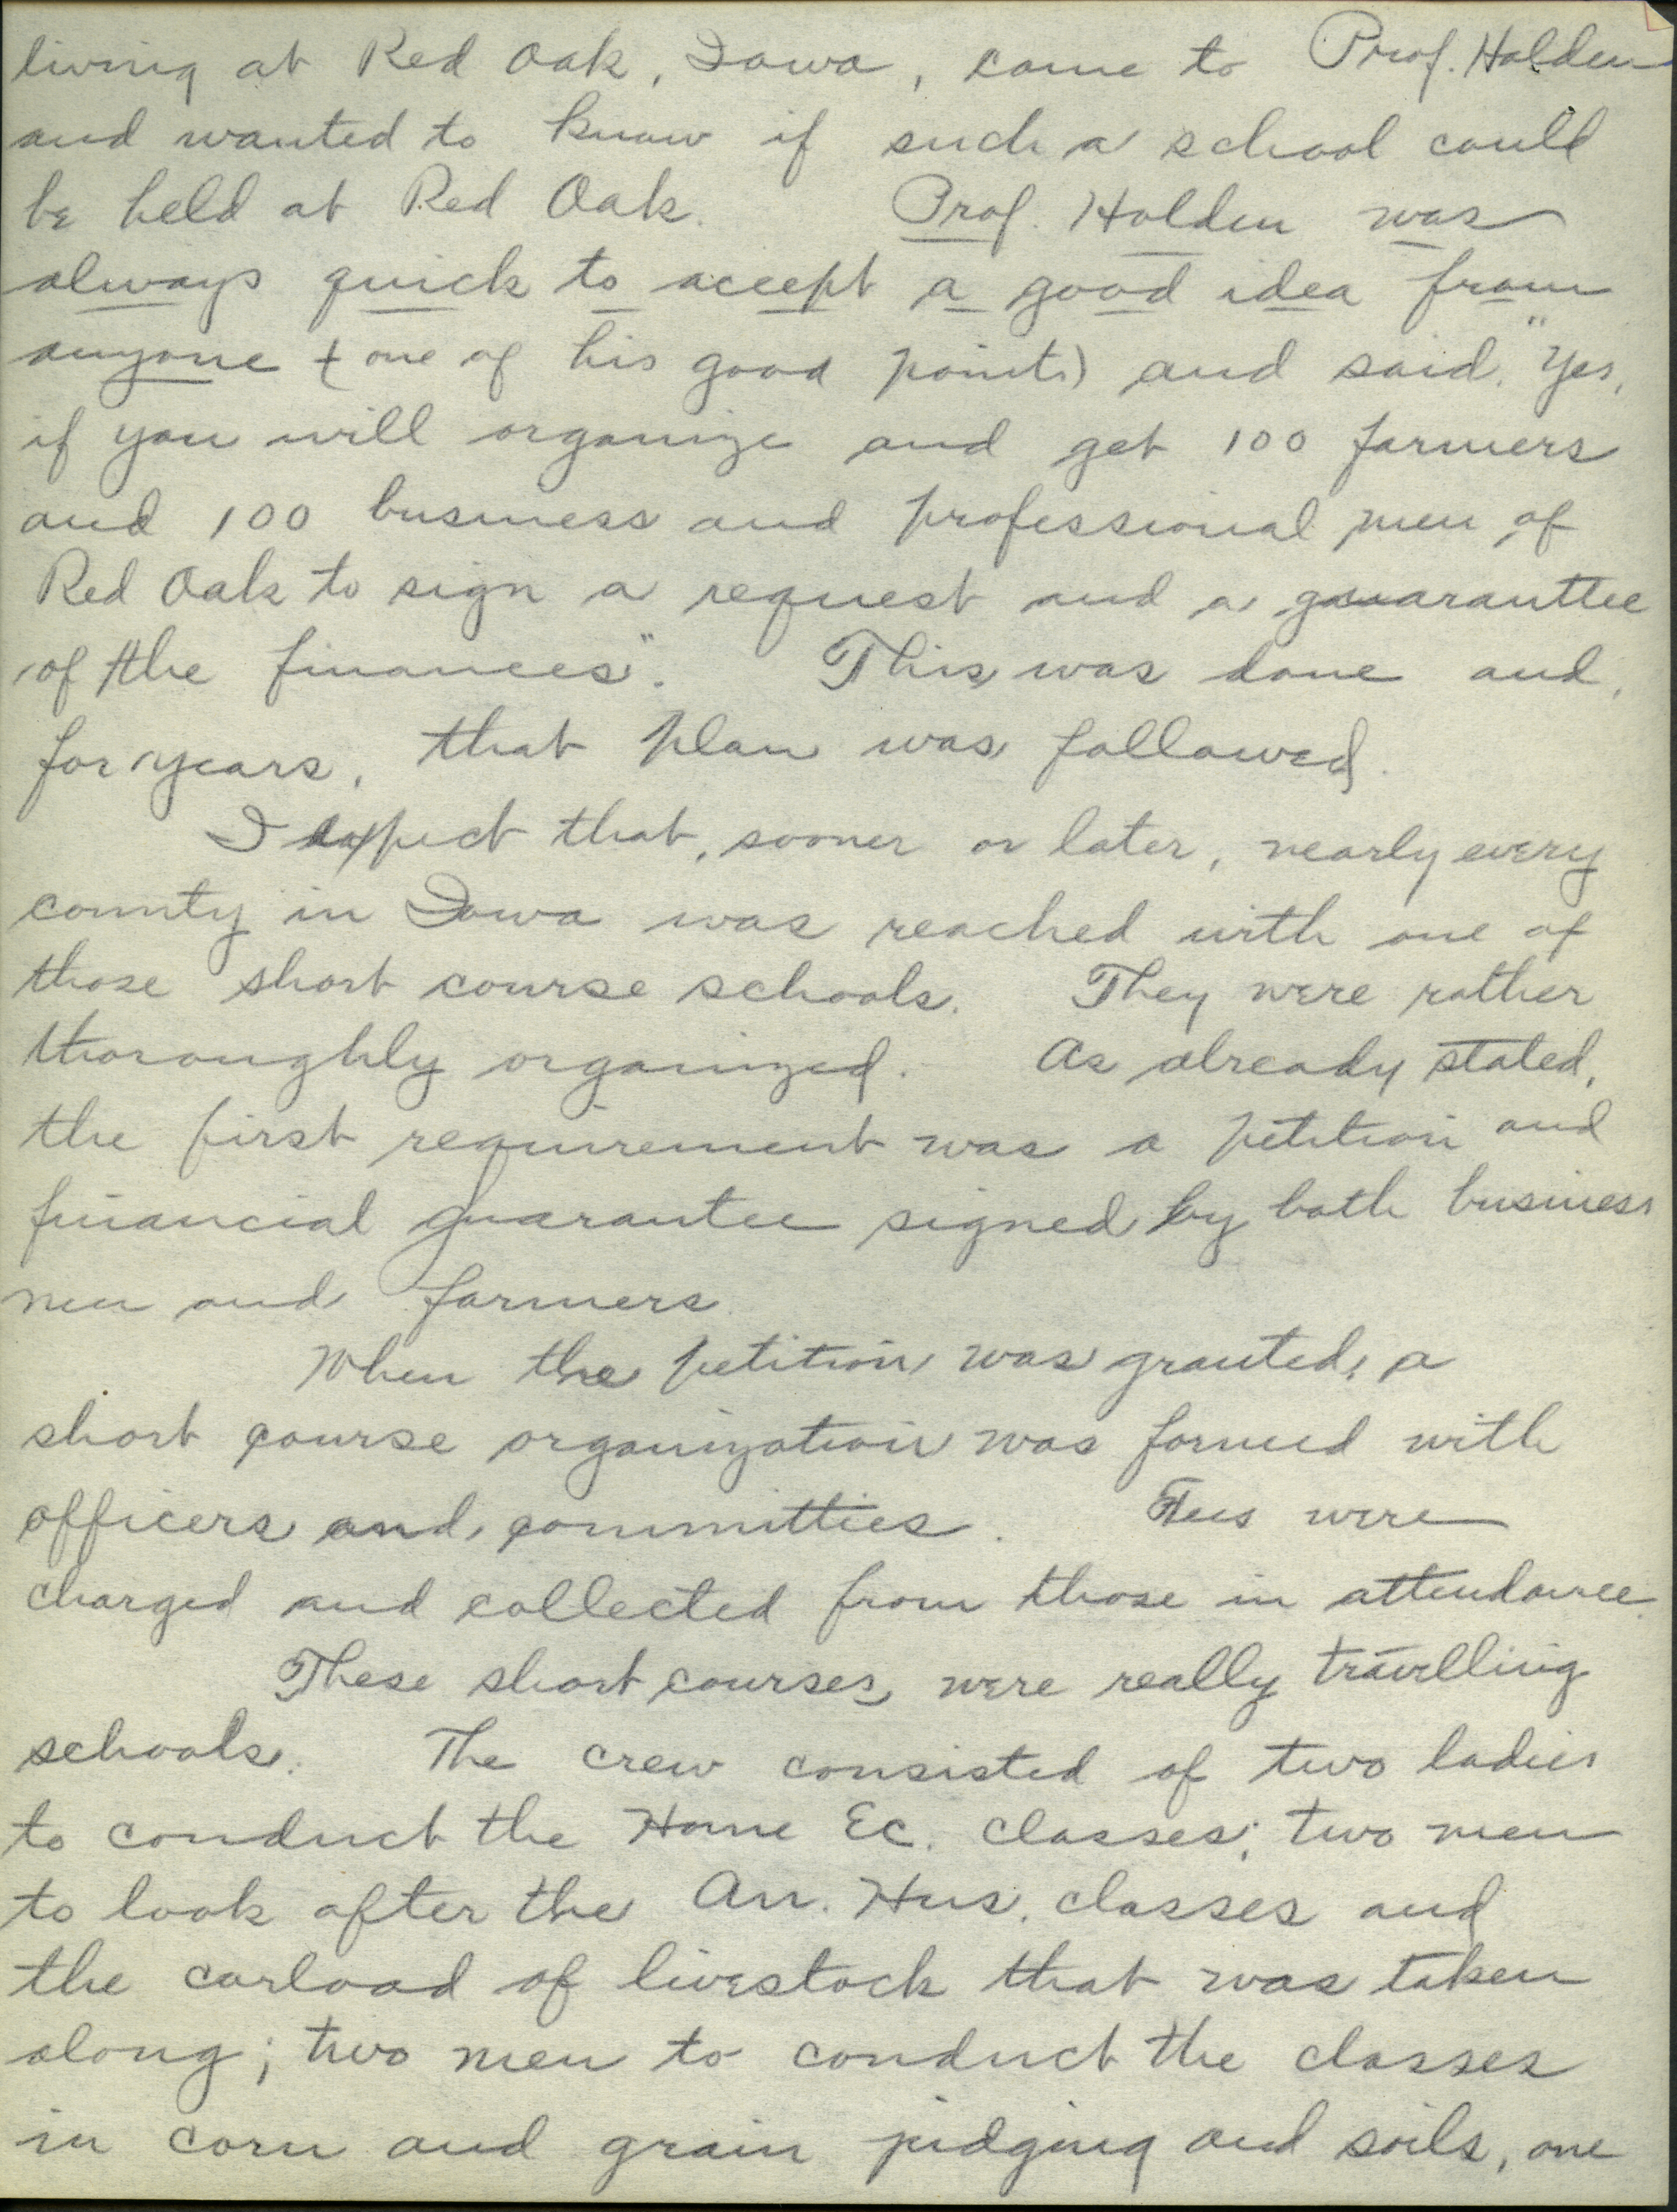 living at Red Oak, Iowa, came to Prof. Holden
and wanted to know if such a school could
be held at Red Oak. Prof. Holden was
always quick to accept a good idea from
anyone (one of his good points) and said, "Yes,
if you will organize and get 100 farmers
and 100 business and professional men of
Red Oak to sign a request and a guarranttee
of the finances". This was done and,
for years, that plan was followed.
I expect that, sooner or later, nearly every
county in Iowa was reached with one of
those short course schools. They were rather
thoroughly organized. As already stated,
the first requirement was a petition and
financial guarantee signed by both business
men and farmers.
When the petition was granted, a
short course organization was formed with
officers and committies. Fees were
charged and collected from those in attendance.
These short courses were really travelling
schools. The crew consisted of two ladies
to conduct the Home Ec. classes; two men
to look after the An. Hus. classes and
the carload of livestock that was taken
along; two men to conduct the classes
in corn and grain judging and soils, one